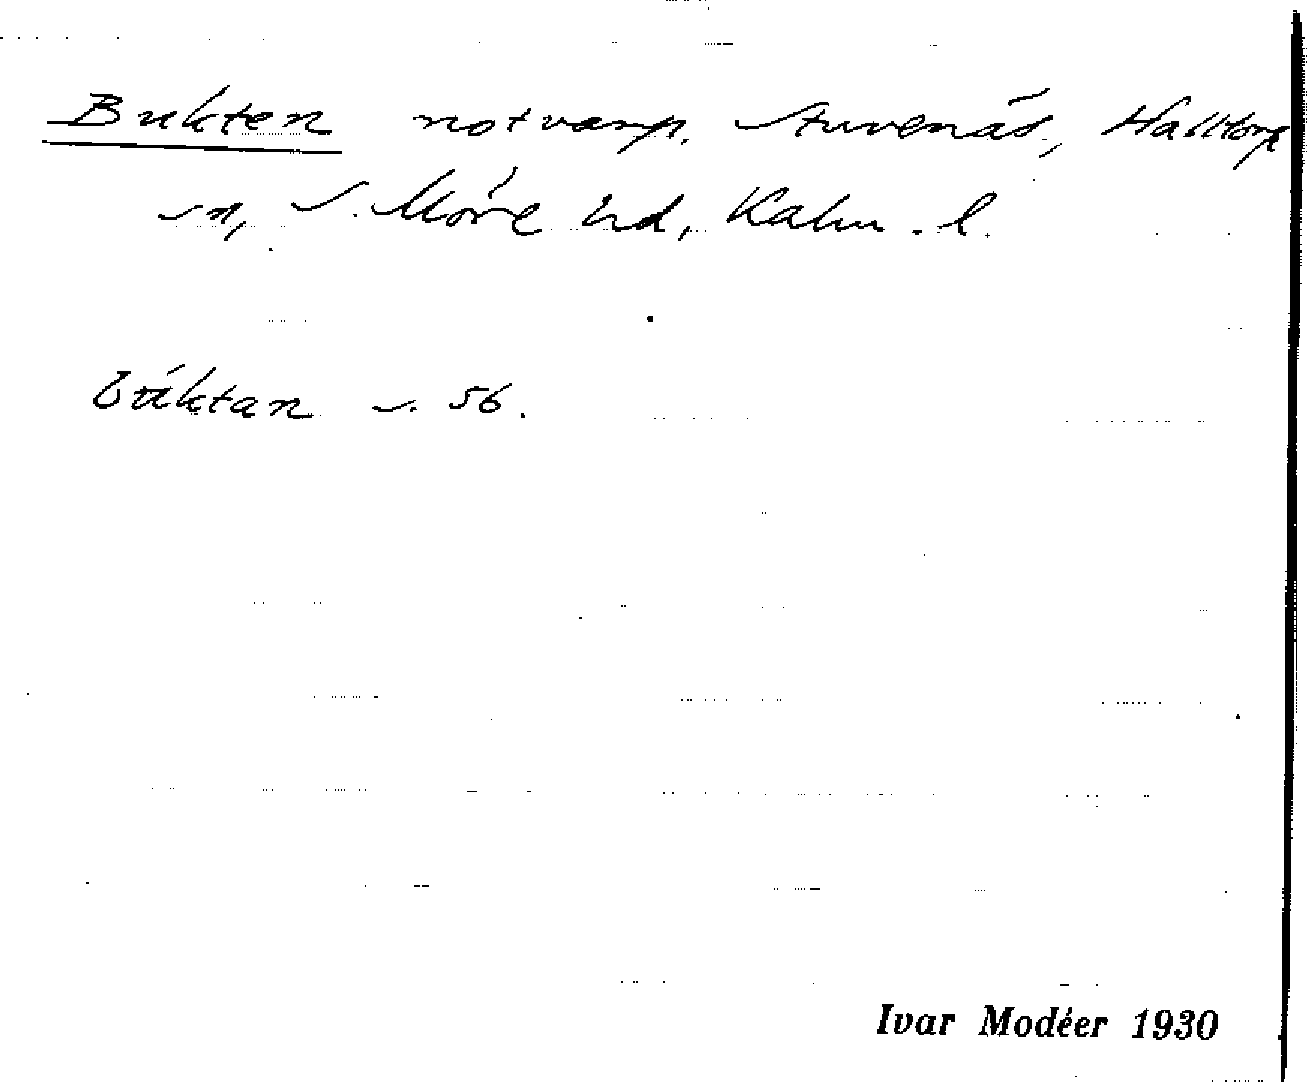 Bukten notvarp. Stuvenäs, Halltorp
sn, S. Möre hd, Kalm. l.
búktan s. 56.
Ivar Modéer 1930